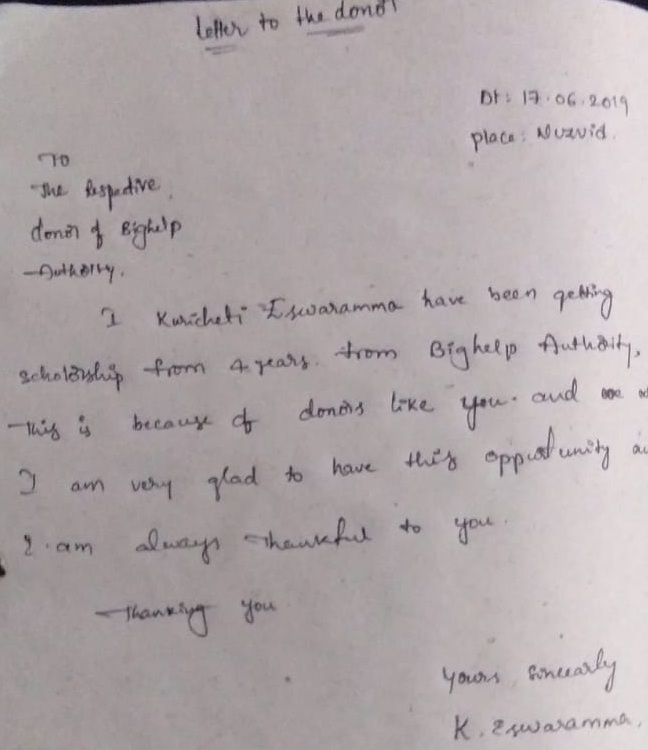 Letter to the donor
Dt: 17.06.2019
place: Nuzvid.
To
The Respective
donor of Bighelp
Authority.
I Kuricheti Eswaramma have been getting
scholorship from 4 years. from Bighelp Authority,
This is because of donors like you. and
I am very glad to have this oppurtunity
I am always Thankful to you.
Thanking you
Yours sincearly
K. Eswaramma.